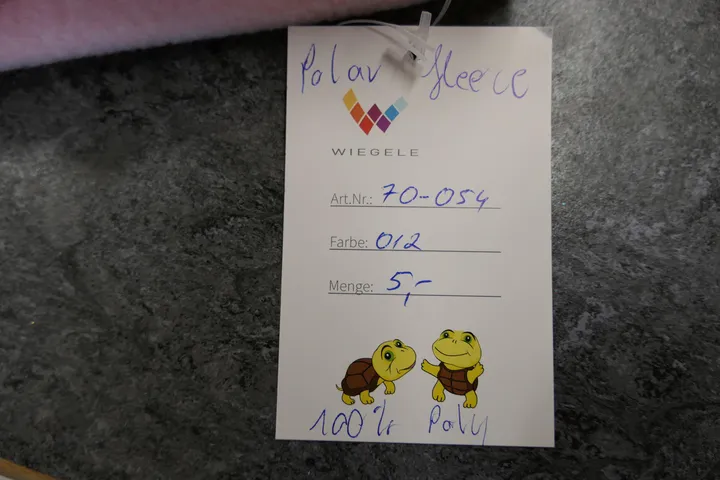 Polar fleece
WIEGELE
Art.Nr.: 70-054
Farbe: 012
Menge: 5,-
100% Poly